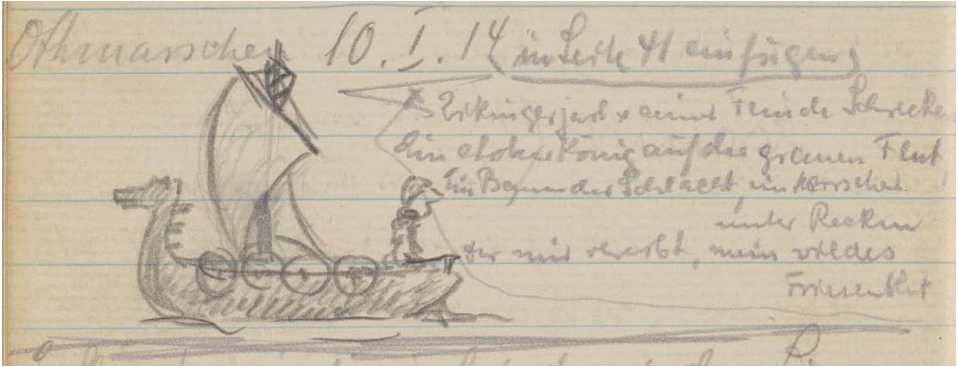 Othmarschen 10. I. 14 (in Seite 41 einfügen)
Wikingerjarl seiner Feinde Schrecken
Ein stolzer König auf der grauen Flut,
Ein Banner der Schlacht, ein Herrscher
unter Recken
der mir vererbt, mein wildes
Friesenblut